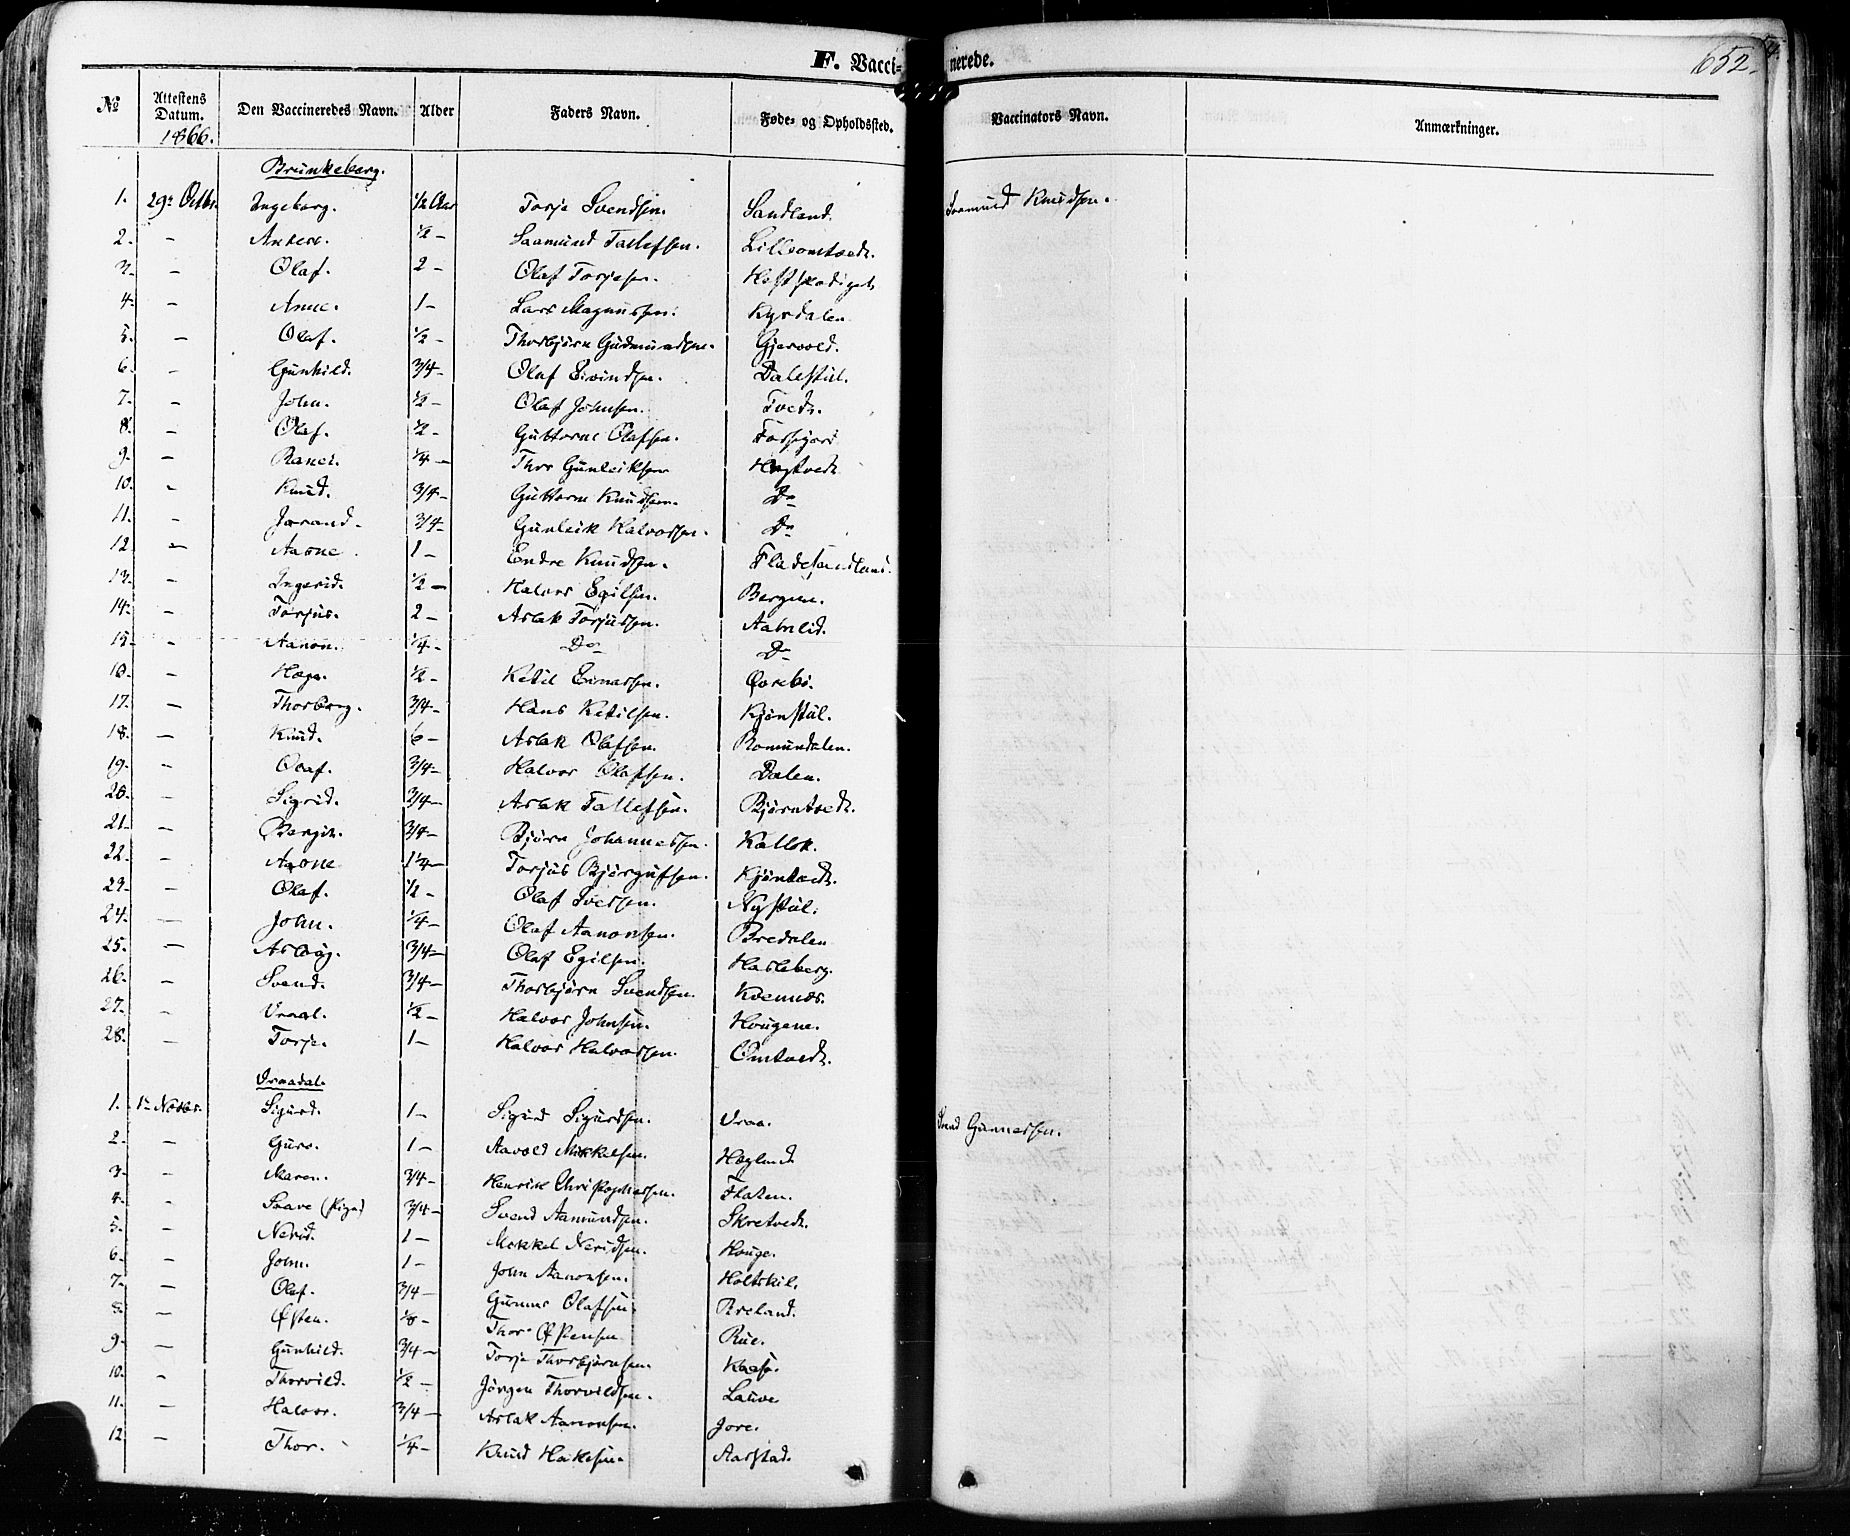 F. Vaccinerede. 652.
No Attestens Datum. Den Vaccineredes Navn. Alder Faders Navn. Føde- og Opholdssted. Vaccinators Navn. Anmærkninger.
1866.
Brunkeberg.
1. 29de Octbr. Ingeborg. 1/2 Aar Torje Svendsen. Sandland. Saamund Knudsen.
2. - 1/2 - Saamund Tallefsen.
3. - Olaf. 2 - Olaf Torjesen.
4. - Anne. 1 - Lars Magnussen. Kyrdalen
5. - Olaf. 1/2 - Thorbjørn Gudmundsen. Gjervold.
6. - Gunhild. 3/4 - Olaf Eivindsen. Dalestul.
7. - John. 1/2 - Olaf Johnsen. Tvedt.
8. - Olaf. 1/2 - Guttorm Olafsen.
9. - 1/4 - Thor Gunleiksen
10. - Knud. 3/4 - Guttorm Knudsen. Do
11. - Jorand. 3/4 - Gunleik Halvorsen. Do
12. - Aasne. 1 - Endre Knudsen. Fladesandland.
13. - Ingerid. 1/2 - Halvor Egilsen. Bergene.
14. - Torjus. 2 - Aslak Torjussen. Aabnlid.
15. - Aanon. 1/4 - Do Do
16. - Hæge. 1/2 - Ketil Einarsen. Øvrebø.
17. - Thorborg. 3/4 - Hans Ketilsen. Kjønstul.
18. - Knud. 6 - Aslak Olafsen. Romundalen.
19. - Olaf. 3/4 - Halvor Olafsen. Dalen.
20. - Sigrid. 3/4 - Aslak Tallefsen. Bjørntvedt.
21. - Bergit. 3/4 - Bjørn Johannessen. Kallok.
22. - Aasne 1 1/4 - Torjus Bjørgufsen. Kjøntvedt.
23. - Olaf. 1/2 - Olaf Iversen. Nystul.
24. - John. 1/4 - Olaf Aanonsen. Bredalen
25. - Aslaug. 3/4 - Olaf Egilsen. Hasleberg.
26. - Svend. 3/4 - Thorbjørn Svendsen. Kvennes.
27. - Vraal. 1/2 - Halvor Johnsen. Hougene.
28. - Torje. 1 - Halvor Halvorsen. Omtvedt.
Vraadal.
1. 1ste Novbr. Sigurd. 1 - Sigurd Sigurdsen. Vraa. Svend Gunnersen.
2. - Guro. 1 - Aavold Mikkelsen. Hæglund
3. - Maren. 3/4 - Henrik Christophersen. Flaten.
4. - Saave (Pige) 3/4 - Svend Aamundsen. Skretvedt.
5. - Nerid. 1 - Mikkel Neridsen. Houge.
6. - John. 1 - John Aanonsen. Holtskil.
7. - Olaf. 3/4 - Gunner Olafsen. Breland.
8. - Østen. 1/8 - Thor Østensen Rue.
9. - Gunhild. 3/4 - Torje Thorbjørnsen. Kaasa.
10. - Thorvild. 1/2 - Jørgen Thorvildsen. Lauve
11. - Halvor. 3/4 - Aslak Aanonsen. Jore.
12. - Thor. 1/4 - Knud Hakesen. Aarstad.